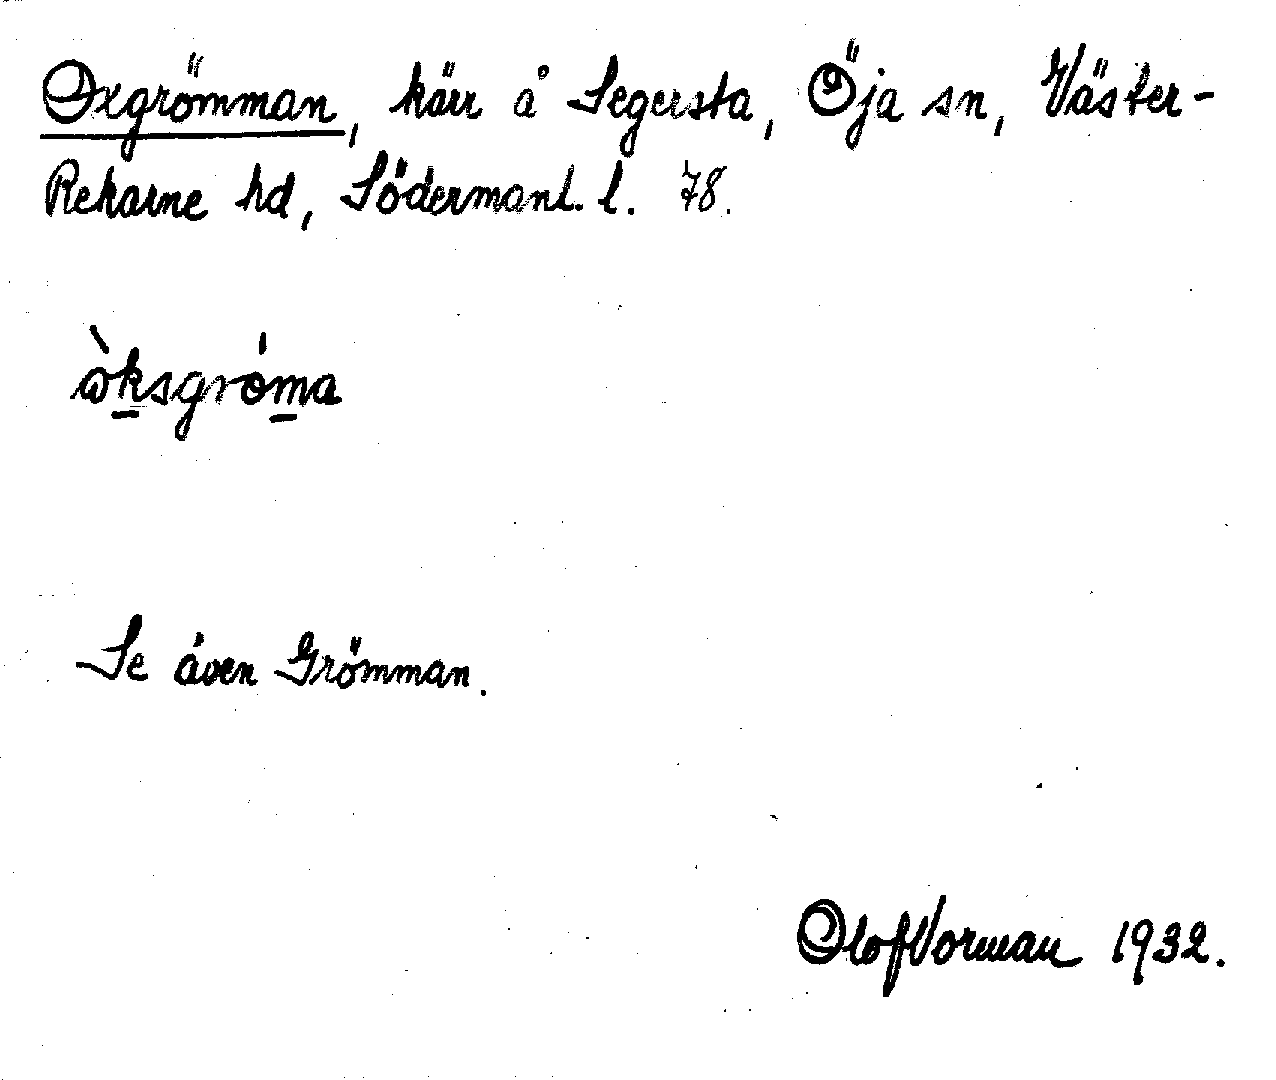 Oxgrömman, kärr å Segersta, Öja sn, Väster-
Rekarne hd, Södermanl. l. 78.
òksgróma
Se även Grömman.
Olof Vorman 1932.